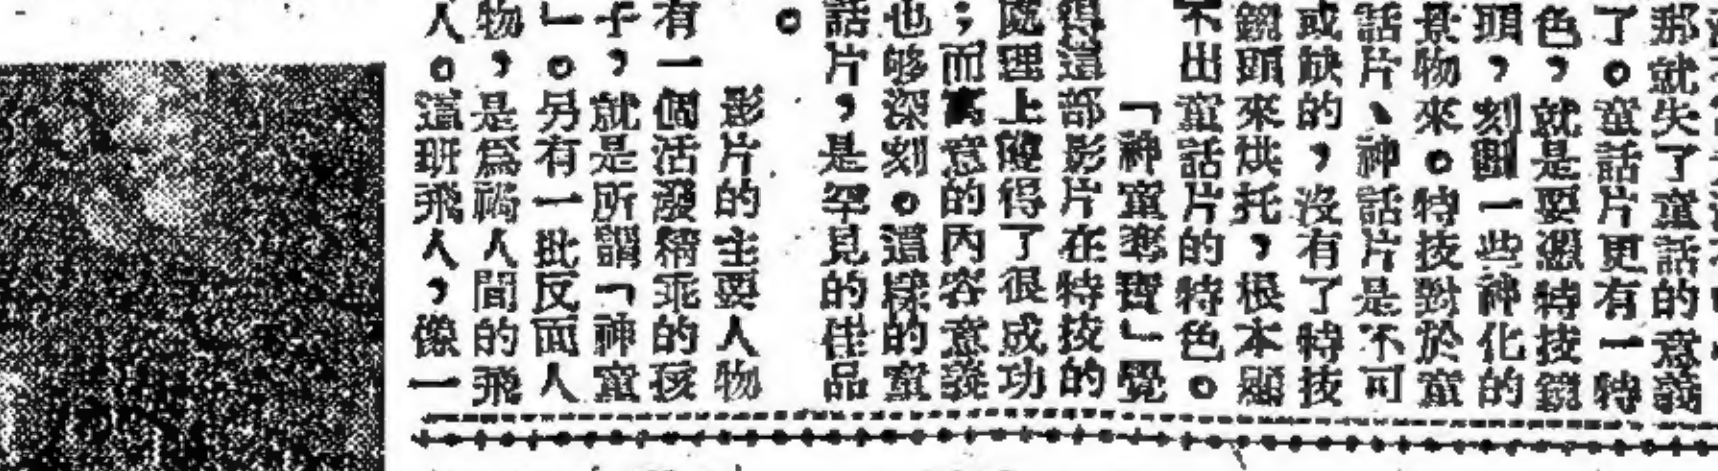 那就失了童話的意義
了。童話片更有一特
色，就是要憑特技鏡
頭，刻劃一些神化的
景物來。特技對於童
話片、神話片是不可
或缺的，沒有了特技
鏡頭來烘托，根本顯
不出童話片的特色。
「神童奪寶」覺
得這部影片在特技的
處理上做得了很成功
；而寓意的內容意義
也够深刻。這樣的童
話片，是罕見的佳品
。
影片的主要人物
有一個活潑精乖的孩
子，就是所謂「神童
」。另有一批反面人
物，是爲禍人間的飛
人。這班飛人，像一